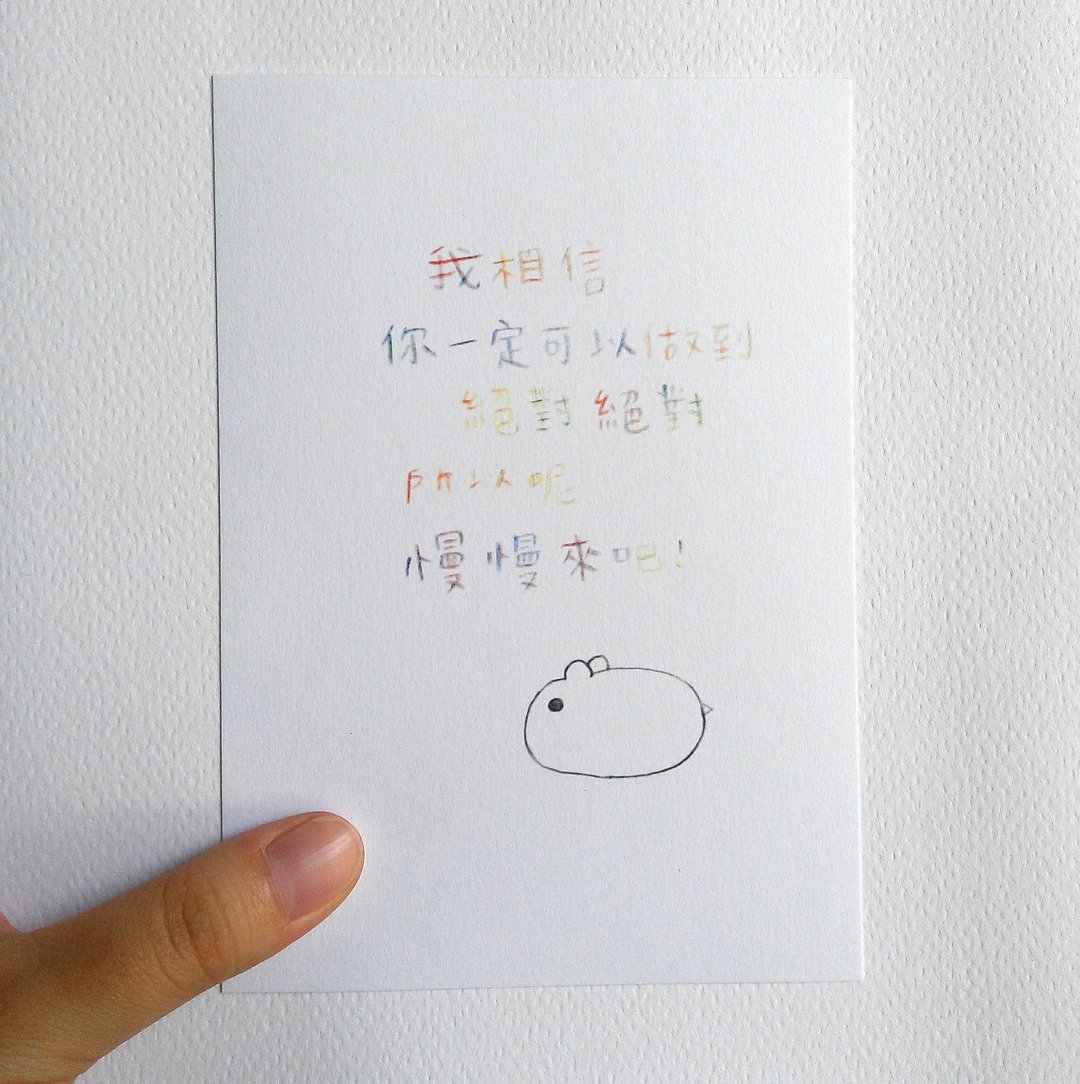 我相信
你一定可以做到
絕對絕對
所以呢
慢慢來吧!